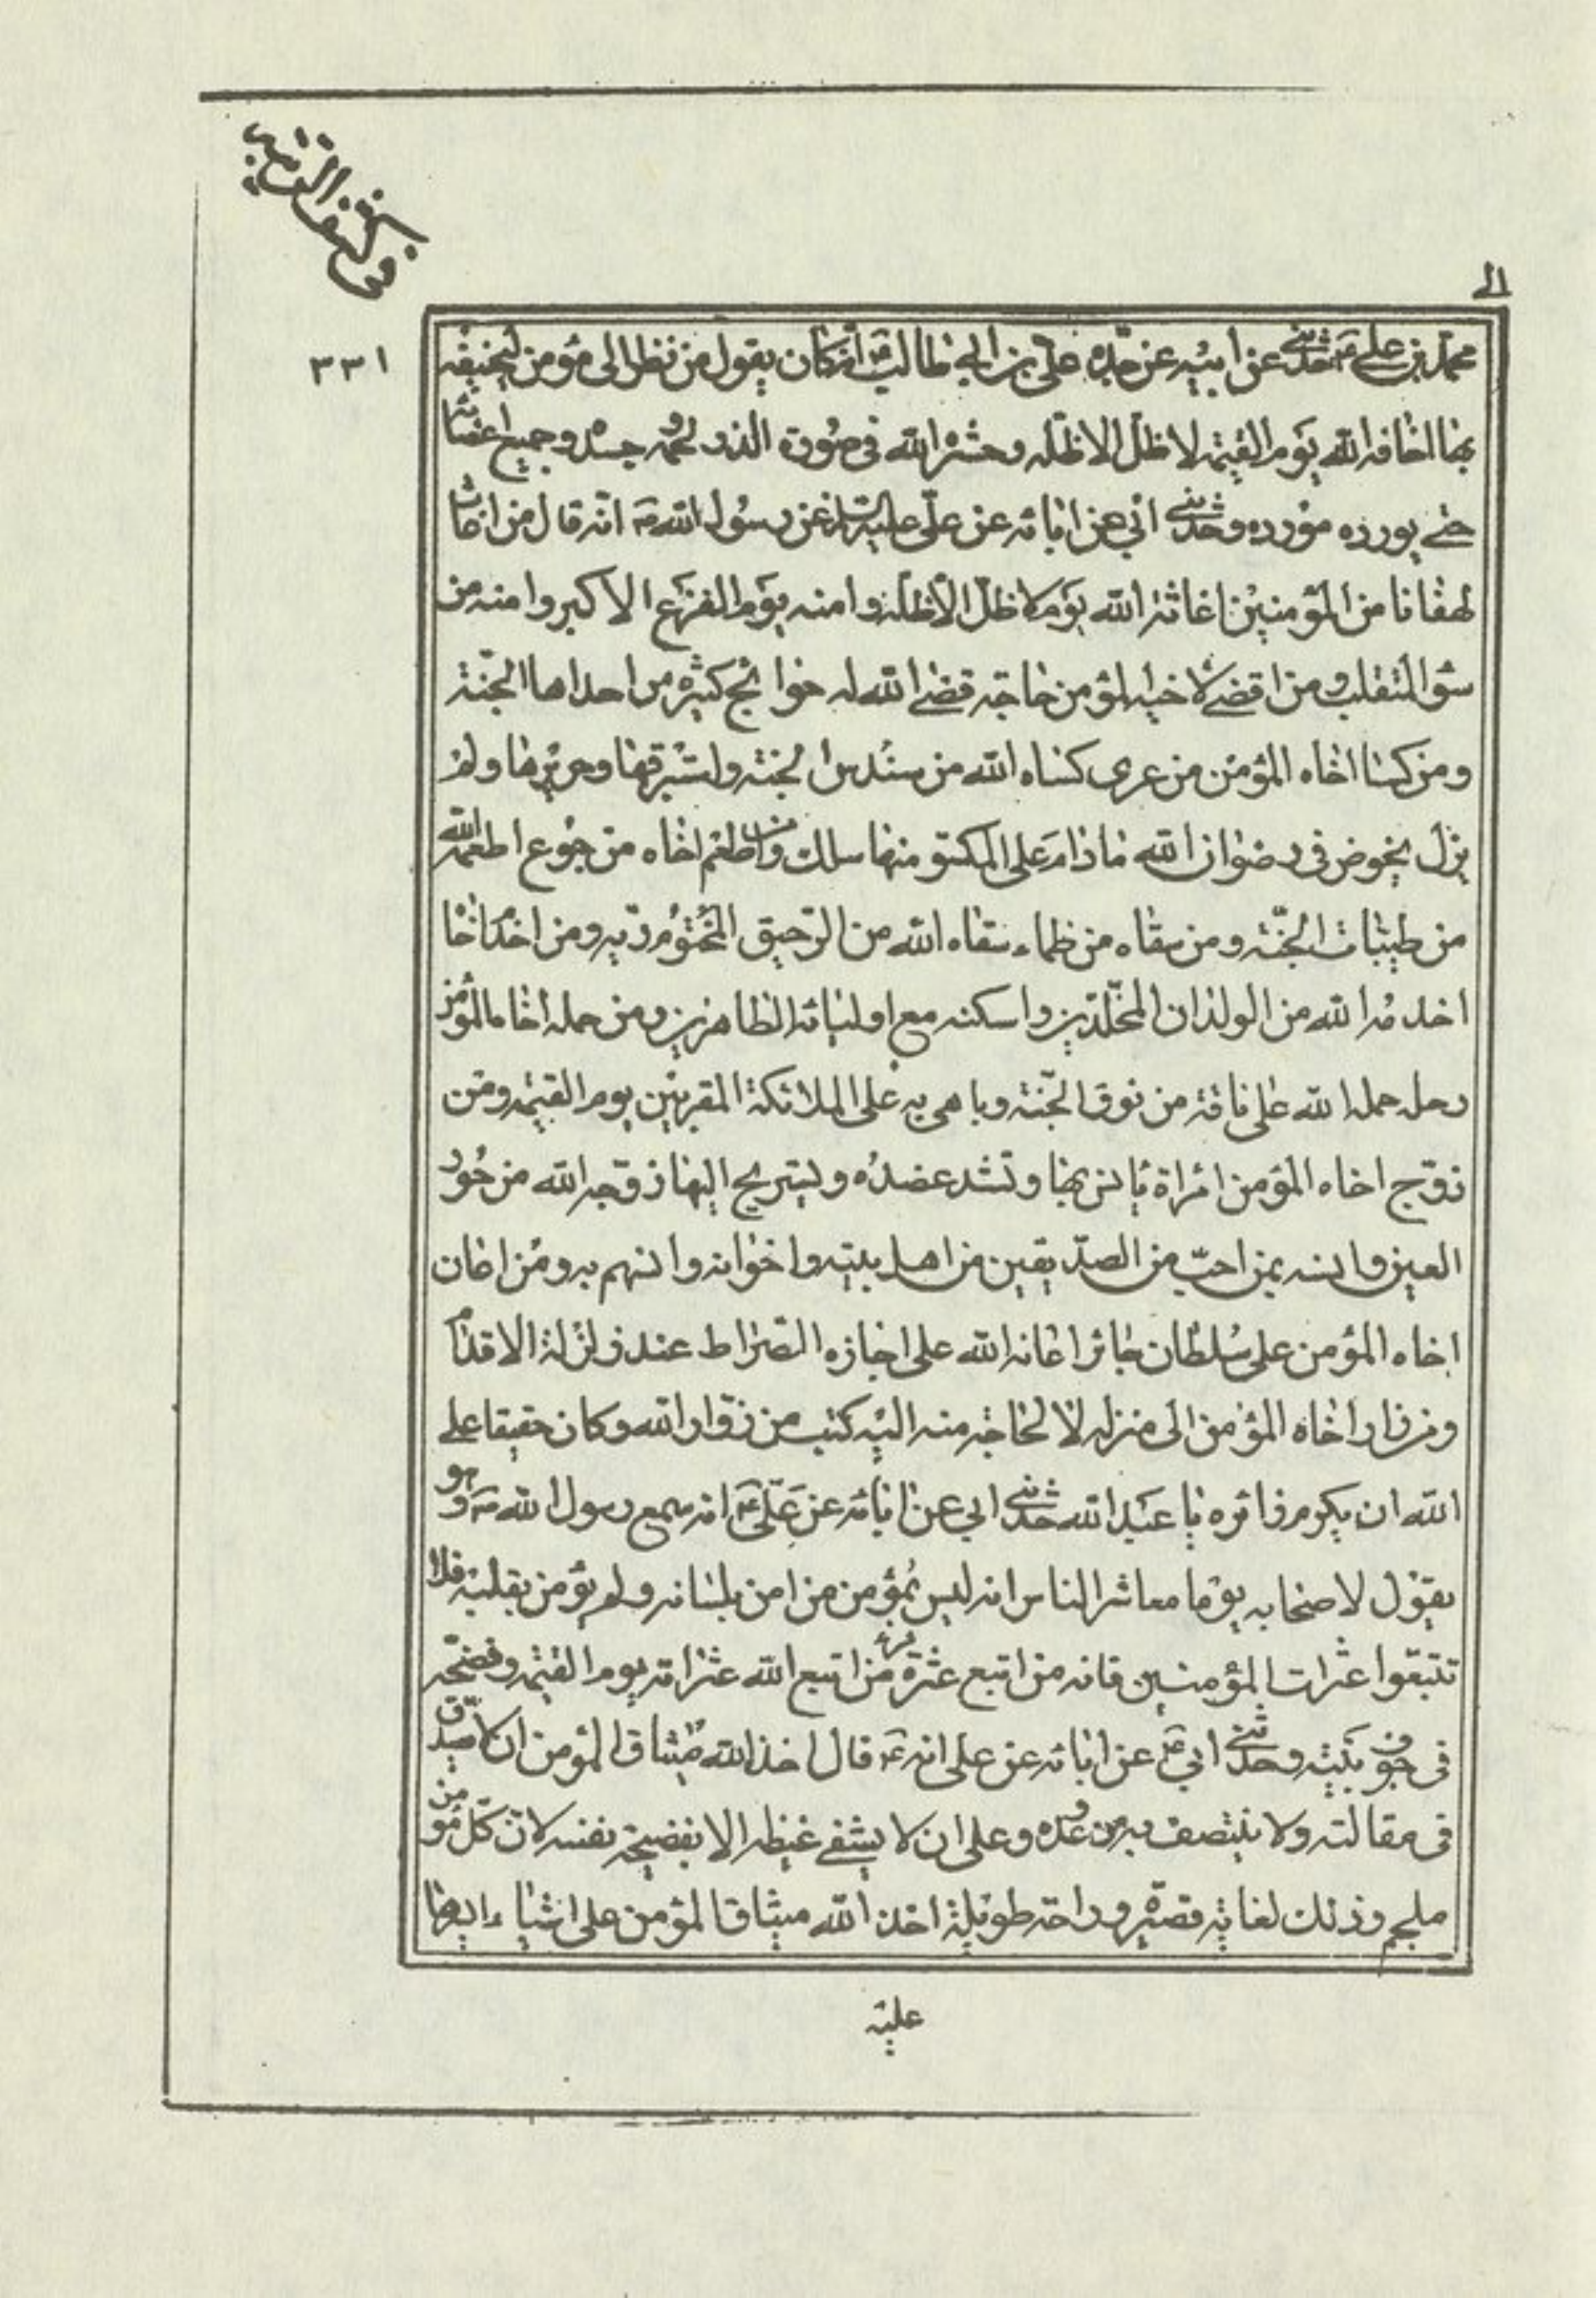 في كشف الغيبة
الى
٣٣١
محمد بن علي ع حدثني عن ابيه عن جده علي بن ابي طالب ع انه كان يقول من نظر الى مؤمن ليخيفه
بها اخافه الله يوم القيمة لا ظل الا ظله وحشره الله في صورة الذر لحمه وجسده وجميع اعضائه
حتى يورده مورده وحدثني ابي عن ابائه عن علي عليه السلام عن رسول الله ص انه قال من اغاث
لهفانا من المؤمنين اغاثه الله يوم لا ظل الا ظله وامنه يوم الفزع الاكبر وامنه من
سؤ المتقلب ومن اقضى لاخيه المؤمن حاجة قضى الله له حوائج كثيرة من احداها الجنة
ومن كسا اخاه المؤمن من عرى كساه الله من سندس الجنة واستبرقها وحريرها ولم
يزل يخوض في رضوان الله ما دام على المكسو منها سلك ومن اطعم اخاه من جوع اطعمه الله
من طيبات الجنة ومن سقاه من ظماء سقاه الله من الرحيق المختوم ريه ومن اخدم اخا
اخدمه الله من الولدان المخلدين واسكنه مع اوليائه الطاهرين ومن حمله اخاه المؤمن
رحله حمله الله على ناقة من نوق الجنة وباهى به على الملائكة المقربين يوم القيمة ومن
زوج اخاه المؤمن امراة يانس بها وتشد عضده ويستريح اليها زوجه الله من حور
العين وانسه بمن احب من الصديقين من اهل بيته واخوانه وانسهم به ومن اعان
اخاه المؤمن على سلطان جائر اعانه الله على اجازه الصراط عند زلزلة الاقدام
ومن زار اخاه المؤمن الى منزله لا لحاجة منه اليه كتب من زوار الله وكان حقيقا على
الله ان يكرم زائره يا عبد الله حدثني ابي عن ابائه عن علي ع انه سمع رسول الله ص وهو
يقول لاصحابه يوما معاشر الناس انه ليس بمؤمن من امن بلسانه ولم يؤمن بقلبه فلا
تتبعوا عثرات المؤمنين فانه من اتبع عثرة مؤمن اتبع الله عثراته يوم القيمة وفضحه
في جوف بيته وحدثني ابي ع عن ابائه عن علي انه ع قال اخذ الله ميثاق المؤمن ان لا يصدق
في مقالته ولا ينتصف به من عدوه وعلى ان لا يشفي غيظه الا بفضيحة نفسه لان كل مؤمن
ملجم وذلك لغاية قصيرة وراحة طويلة اخذ الله ميثاق المؤمن على اشياء ايسرها
عليه